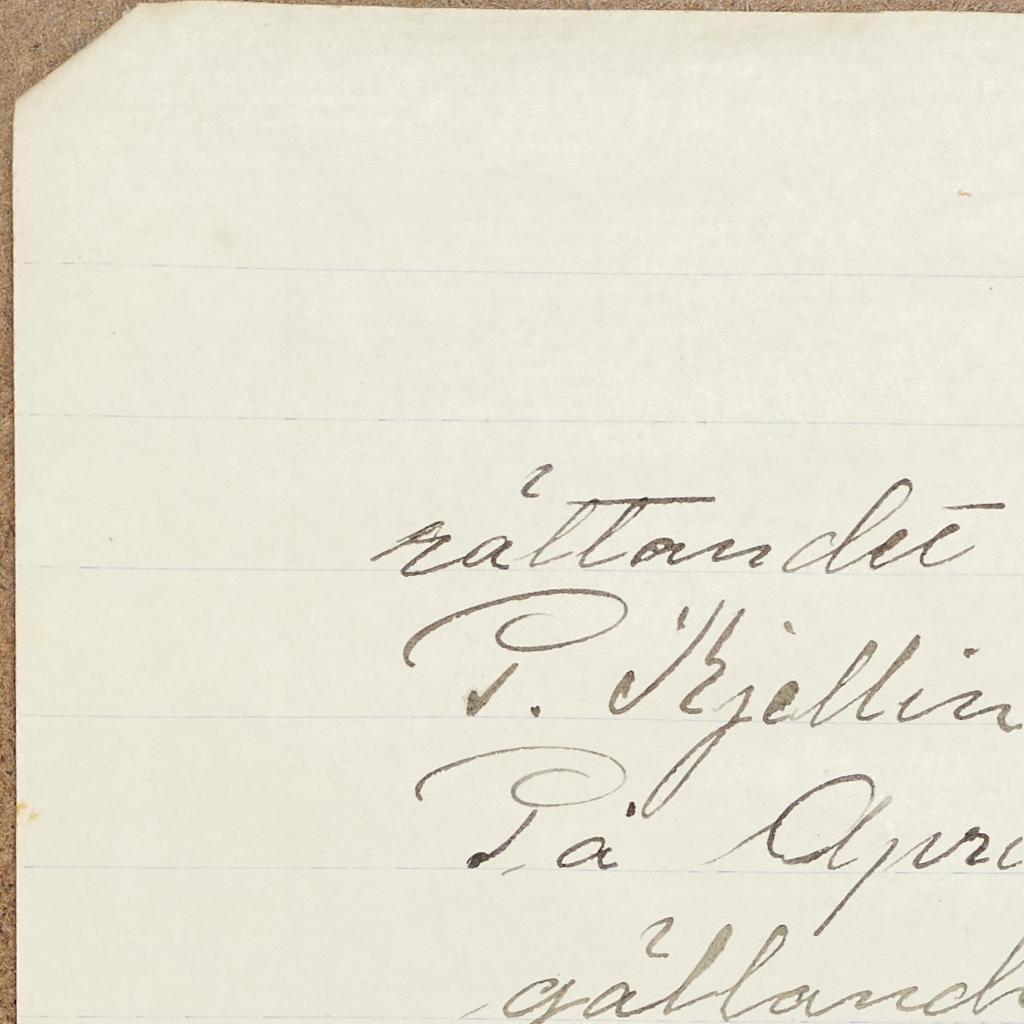 rättandet
P. Kjellin
På Apri
gälland